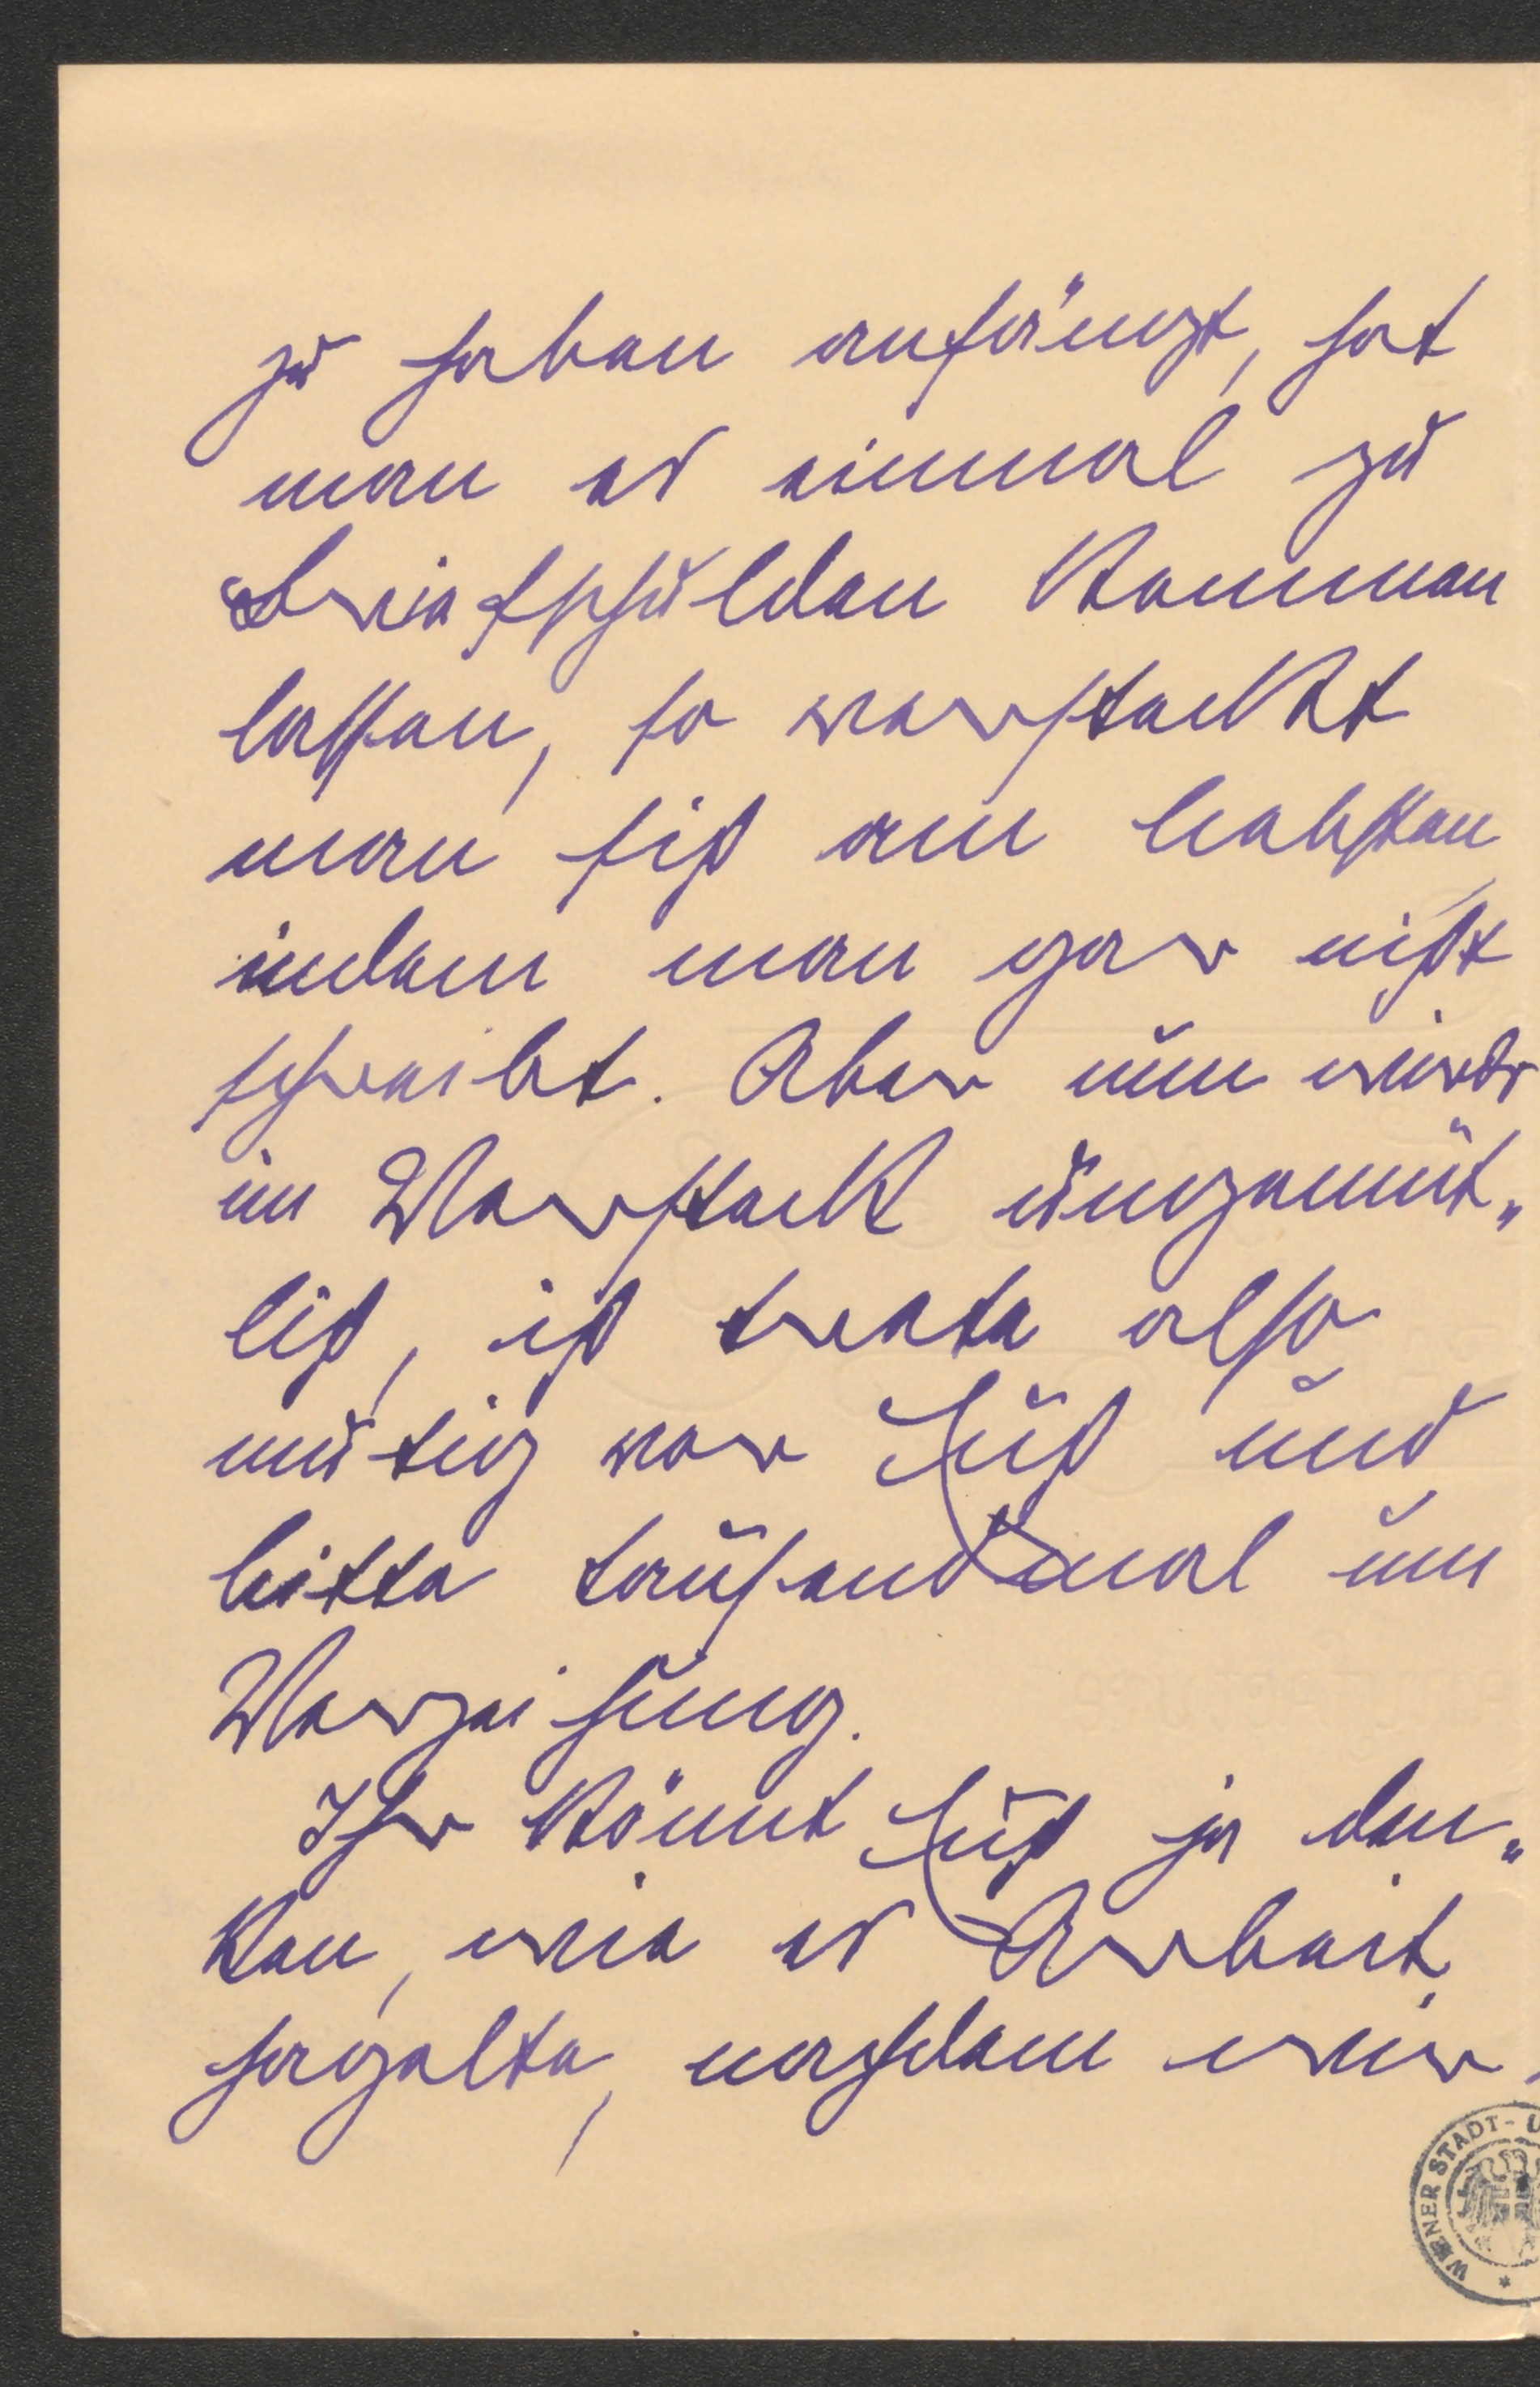 zu haben anfängt, hat
man es einmal zu
Briefschulden kommen
lassen, so versteckt
man sich am liebsten,
indem man gar nicht
schreibt. Aber nun wirds
im Versteck ungemüt„
lich, ich trete also
mutig vor Euch und
bitte tausendmal um
Verzeihung.
Ihr könnt Euch ja den„
ken, wie es Arbeit
hagelte, nachdem wir
WIENER STADT-U